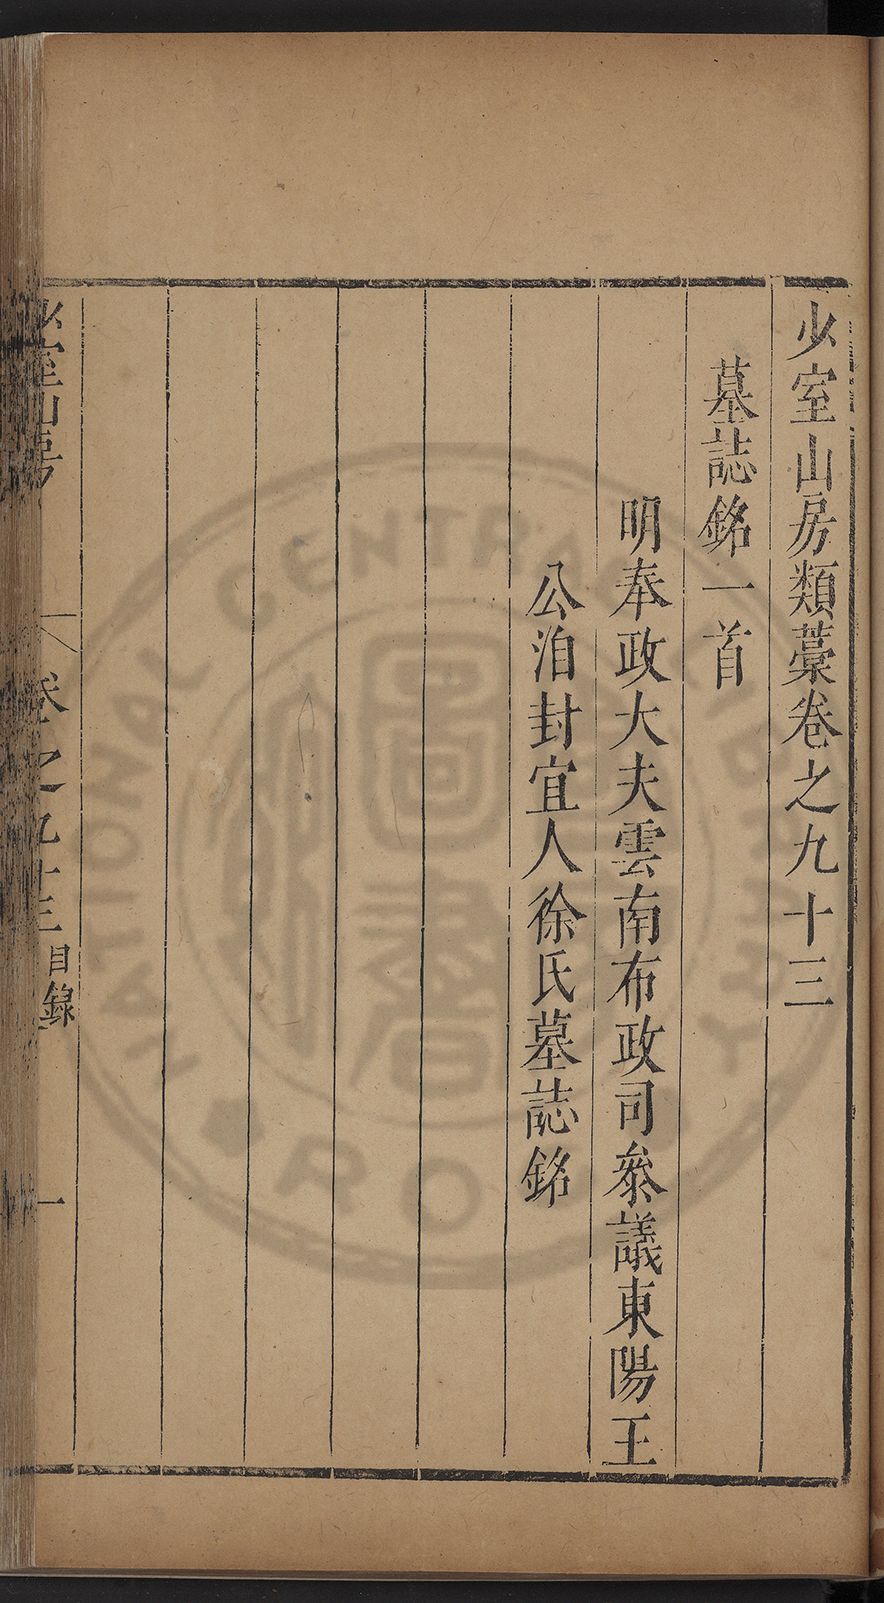 少室山房類藁卷之九十三
墓誌銘一首
明奉政大夫雲南布政司參議東陽王
公洎封宜人徐氏墓誌銘
少室山房 卷之九十三目錄 一